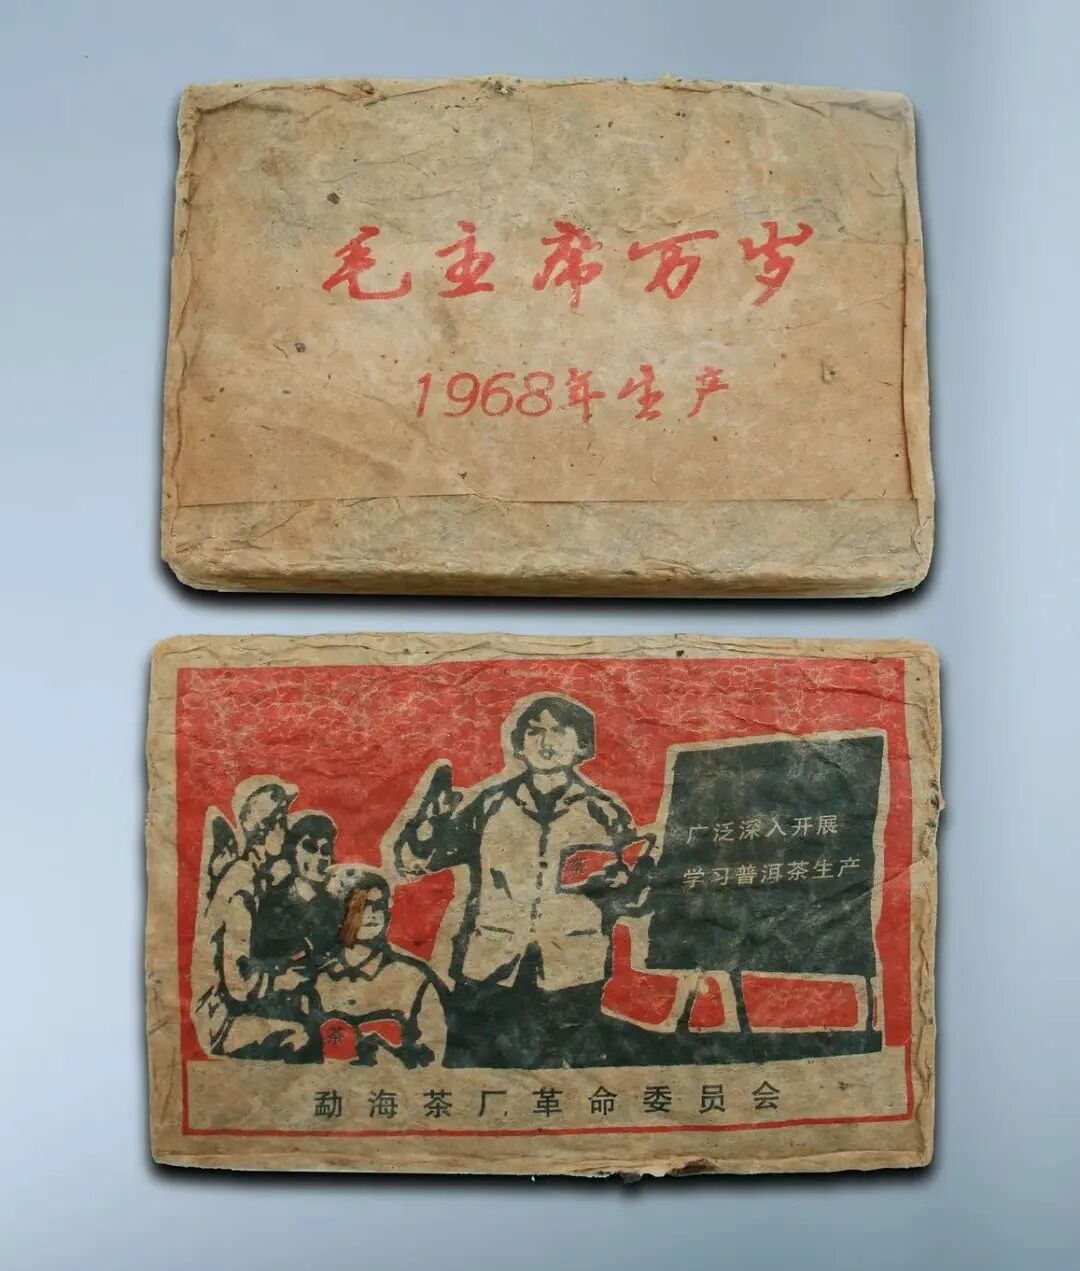 毛主席万岁
1968年生产
广泛深入开展
学习普洱茶生产
茶
茶
勐海茶厂革命委员会